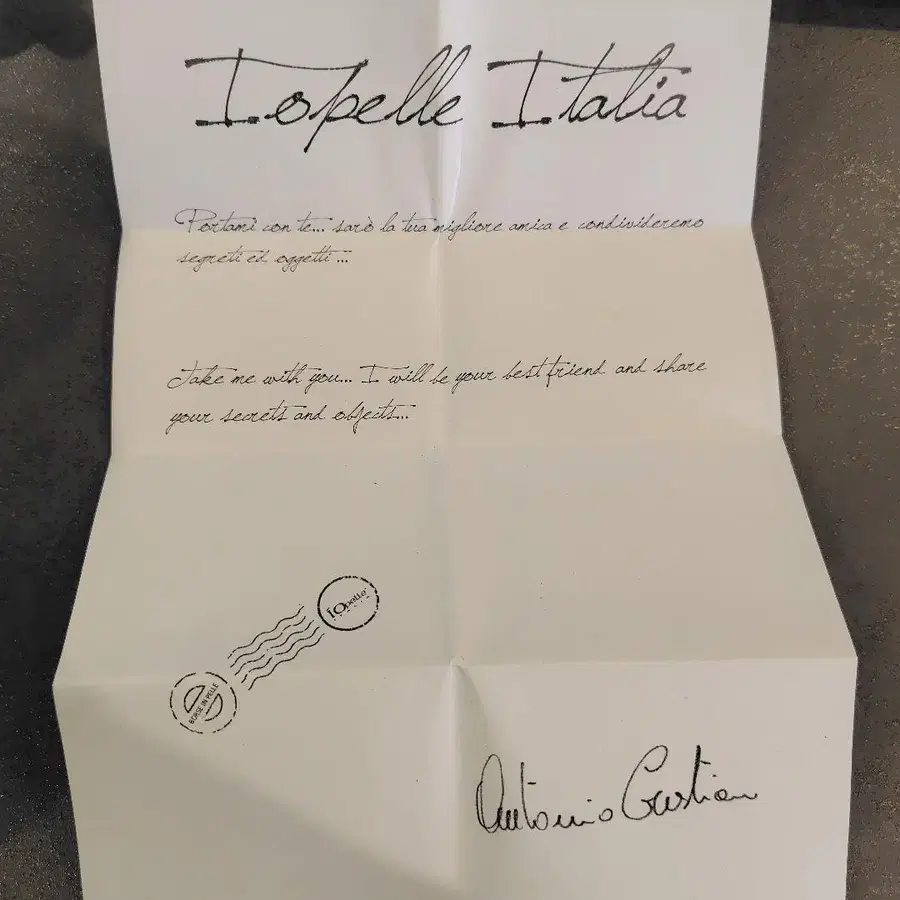 Iopelle Italia
Portami con te... sarò la tua migliore amica e condivideremo
segreti ed oggetti ...
Take me with you... I will be your best friend and share
your secrets and objects...
IOpelle
BORSE IN PELLE
Antonio